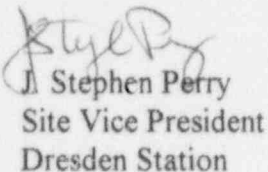 J. Stephen Perry
Site Vice President
Dresden Station